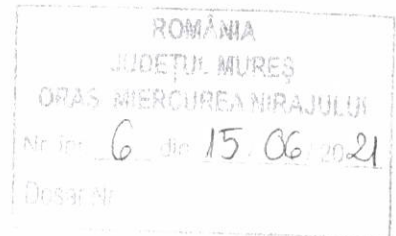 ROMÂNIA
JUDEȚUL MUREȘ
ORAȘ MIERCUREA NIRAJULUI
Nr. înr. 6 din 15. 06 2021
Dosar Nr.